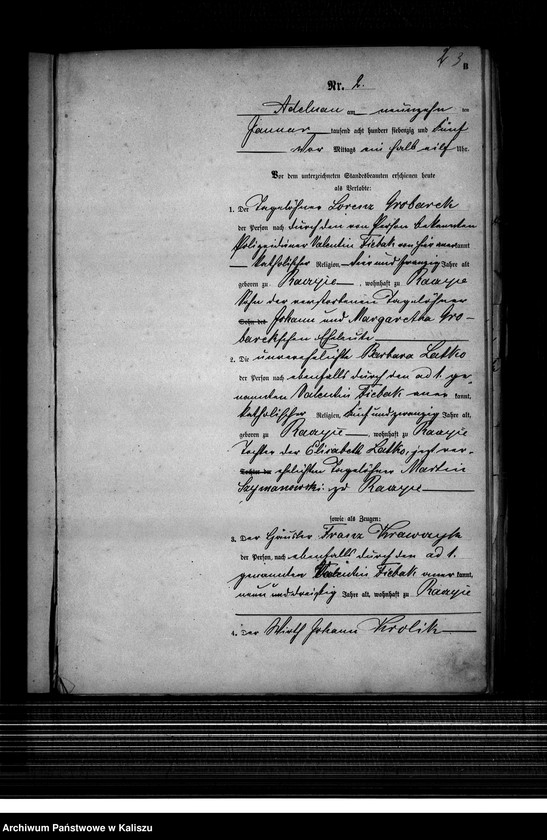 23
B
Nr. 2.
Adelnau am neunzehn ten
Januar tausend acht hundert siebenzig und fünf
vor Mittags ein halb eilf Uhr.
Vor dem unterzeichneten Standesbeamten erschienen heute
als Verlobte:
1. Der Tagelöhner Lorenz Grobarek
der Person nach durch den von Person bekannten
Polizeidiener Valentin Fiebak von hier anerkannt
katholischer Religion, drei und zwanzig Jahre alt
geboren zu , wohnhaft zu
Sohn der verstorbenen Tagelöhner
Johann und Margaretha Gro-
barekschen Eheleute
2. Die unverehelichte Barbara Latko
der Person nach ebenfalls durch den ad 1. ge-
nannten Valentin Fiebak aner kannt,
katholischer Religion, fünf und zwanzig Jahre alt,
geboren zu , wohnhaft zu
Tochter der Elisabeth Latko, jetzt ver-
ehelichten Tagelöhner Martin
Szymanowski zu
sowie als Zeugen:
3. Der Häusler Franz Krawczyk
der Person, nach ebenfalls durch den ad 1.
genannten Valentin Fiebak aner kannt,
neun und dreißig Jahre alt, wohnhaft zu
4. Der Wirth Johann Krolik
Archiwum Państwowe w Kaliszu